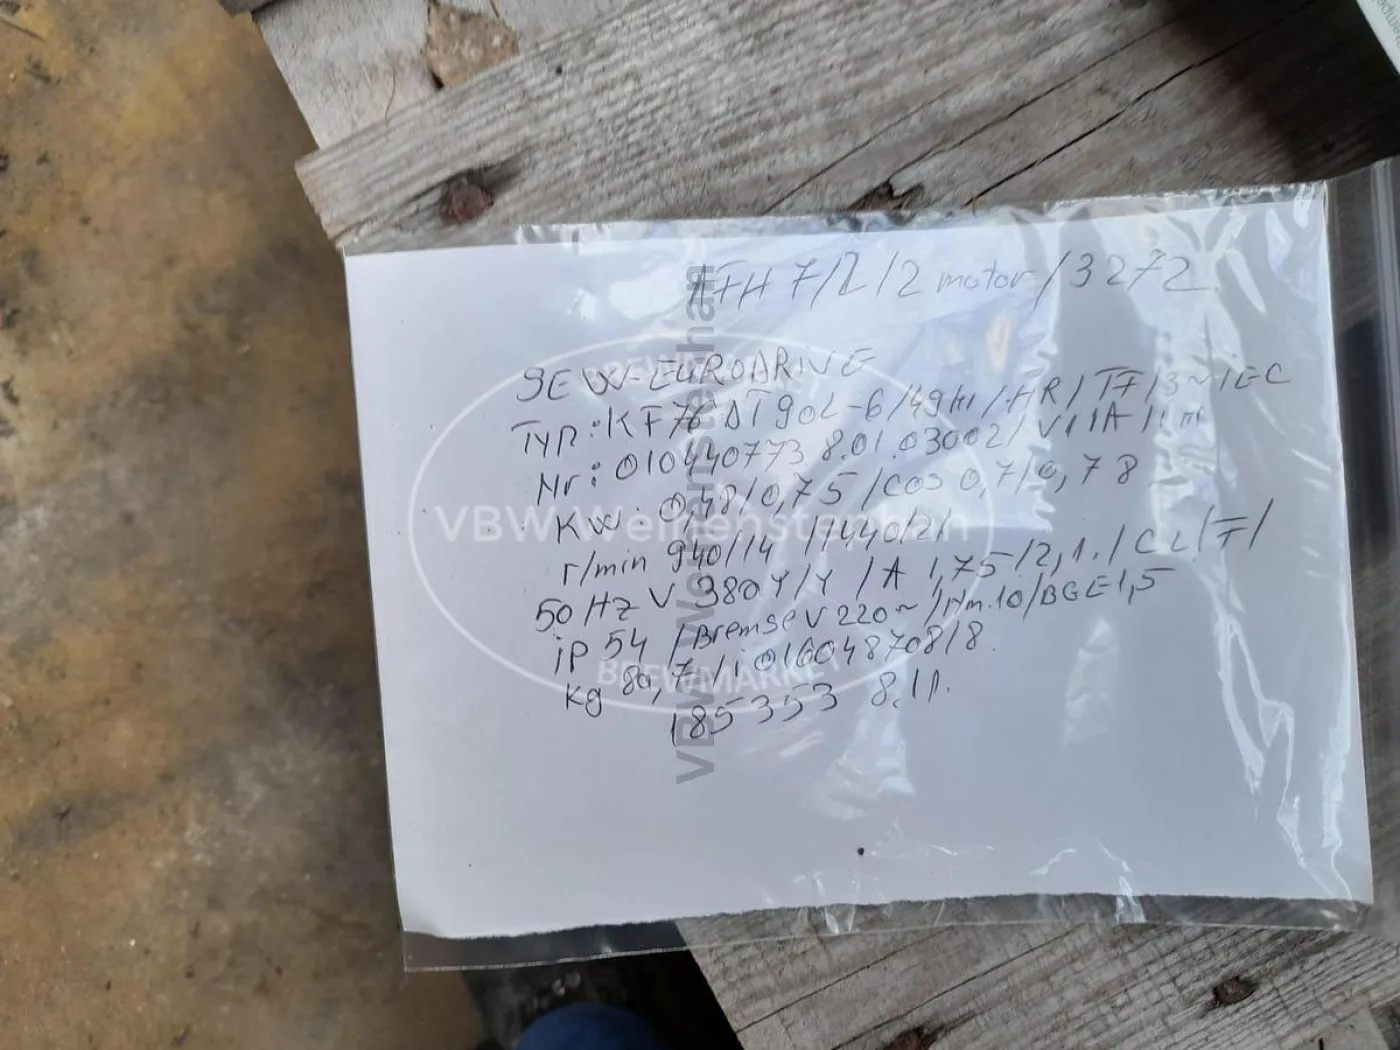 7/2/2 motor/3272
SEW-EURODRIVE
Typ: KF76 DT90L-6/4 /HR/TF/3~/IEC
Nr: 010440773.8.01.03002/V11A/
KW: 0,48/0,75/cos 0,7/0,78
r/min 940/14 /1440/21
50 Hz V 380 Y/Y /A 1,75/2,1./CL/F/
iP 54 /Bremse V 220~/Nm.10/BGE1,5
kg /i 01604870818.
185353 8.11.
VBW Weihenstephan
BREWMARKET
BREWMARKET
VBW Weihenstephan